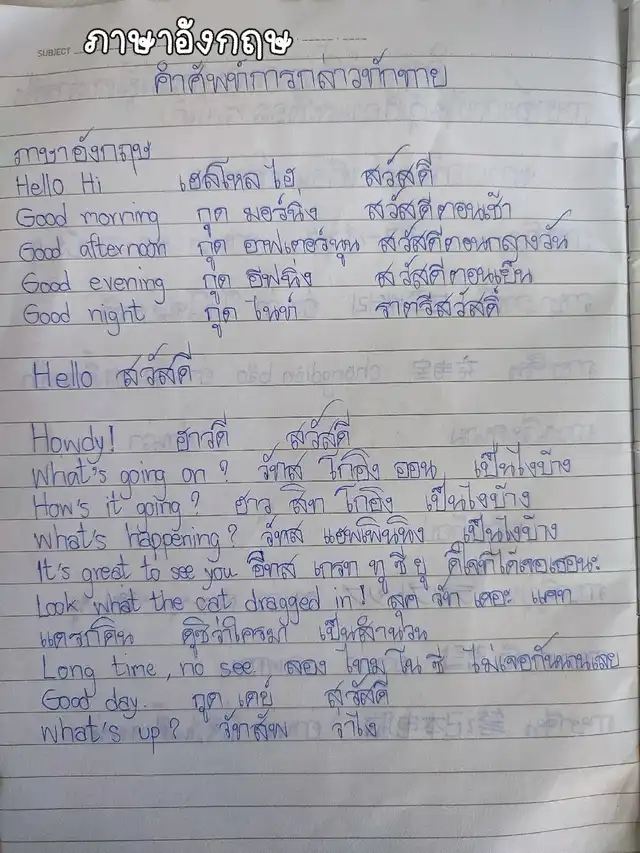 SUBJECT
ภาษาอังกฤษ
คำศัพท์การกล่าวทักทาย
ภาษาอังกฤษ
Hello Hi เฮลโหล ไฮ สวัสดี
Good morning กูด มอร์นิ่ง สวัสดีตอนเช้า
Good afternoon กูด อาฟเตอร์นูน สวัสดีตอนกลางวัน
Good evening กูด อีฟนิ่ง สวัสดีตอนเย็น
Good night กูด ไนท์ ราตรีสวัสดิ์
Hello สวัสดี
Howdy! ฮาวดี สวัสดี
What's going on? วัทส โกอิง ออน เป็นไงบ้าง
How's it going? ฮาว สิท โกอิง เป็นไงบ้าง
What's happening? วัทส แฮพเพินนิง เป็นไงบ้าง
It's great to see you อิทส เกรท ทู ซี ยู ดีใจที่ได้เจอเธอนะ
Look what the cat dragged in! ลุค วัท เดอะ แคท
แดรกดิน ดูซิว่าใครมา เป็นสำนวน
Long time, no see ลอง ไทม โน ซี ไม่เจอกันนานเลย
Good day. กูด เดย์ สวัสดี
What's up? วัทสัพ ว่าไง